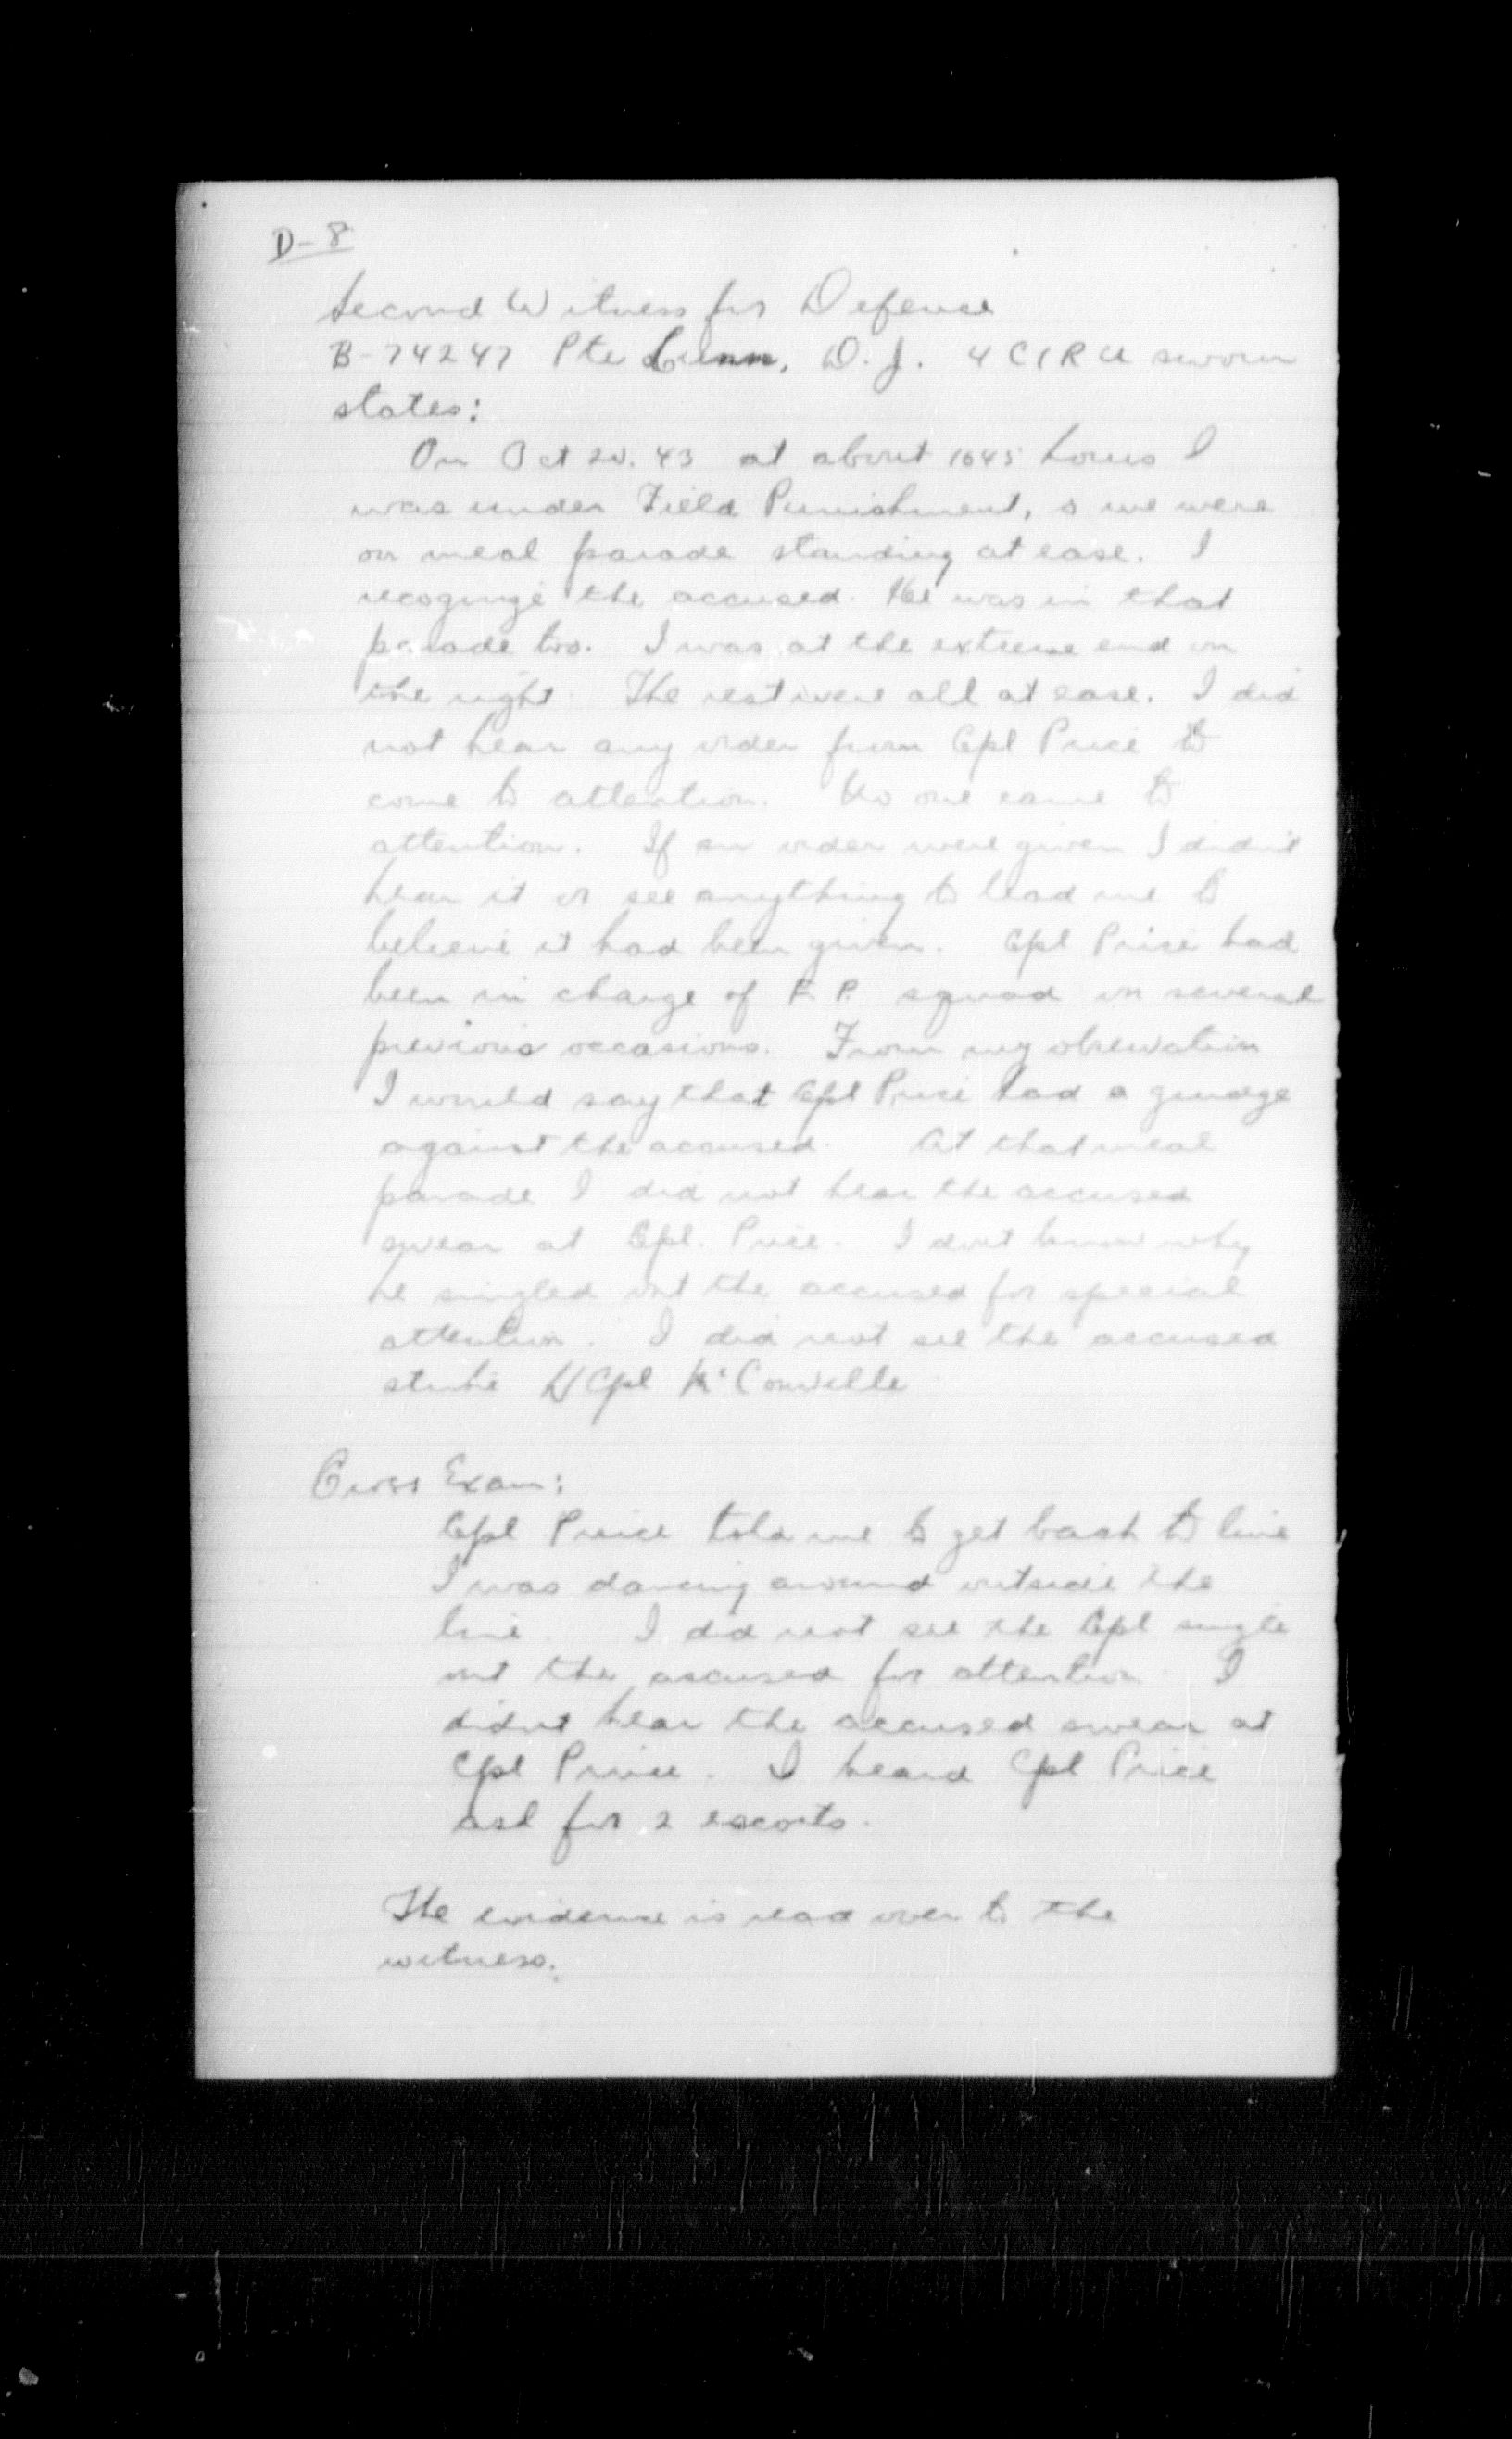 D-8
Second Witness for Defence
B-74247 Pte Lunn, D. J. 4 CIRU sworn
states:
On Oct 20. 43 at about 1645 hours I
was under Field Punishment, & we were
on meal parade standing at ease. I
recognize the accused. He was in that
parade too. I was at the extreme end on
the right. The rest were all at ease. I did
not hear any order from Cpl Price to
come to attention. No one came to
attention. If an order were given I didn't
hear it or see anything to lead me to
believe it had been given. Cpl Price had
been in charge of F.P. squad on several
previous occasions. From my observation
I would say that Cpl Price had a grudge
against the accused. At that meal
parade I did not hear the accused
swear at Cpl. Price. I dont know why
he singled out the accused for special
attention. I did not see the accused
strike L/Cpl McConville
Cross Exam:
Cpl Price told me to get back to line
I was dancing around outside the
line. I did not see the Cpl single
out the accused for attention. I
didnt hear the accused swear at
Cpl Price. I heard Cpl Price
ask for 2 escorts.
The evidence is read over to the
witness.